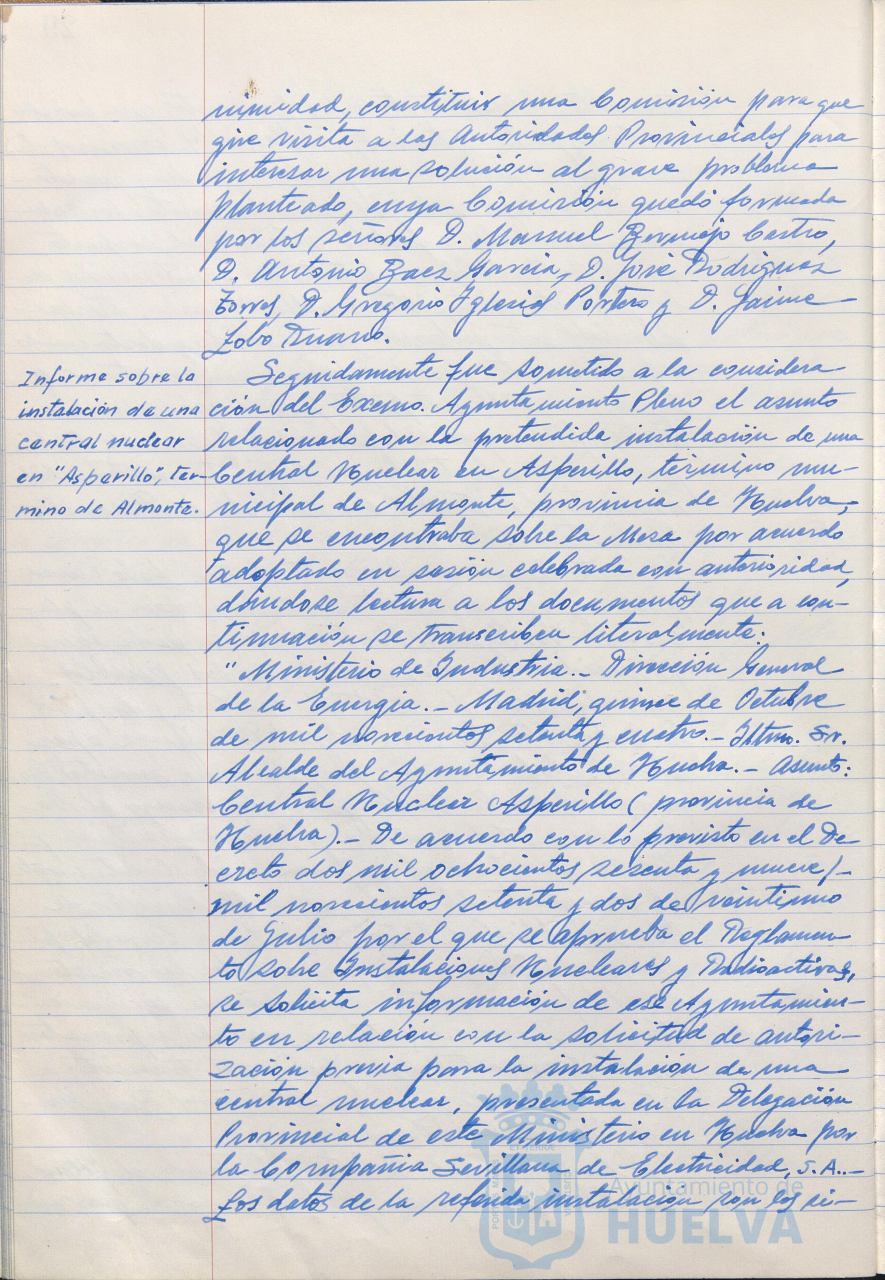 nimidad, constituir una Comisión para que
gire visita a las Autoridades Provinciales para
interesar una solución al grave problema
planteado, cuya Comisión quedó formada
por los señores D. Manuel Bermejo Castro,
D. Antonio Baez Garcia, D. José Rodriguez
Torres, D. Gregorio Iglesias Portero y D. Jaime
Lobo
Informe sobre la
instalación de una
central nuclear
en "Asperillo", ter-
mino de Almonte.
Seguidamente fue sometido a la considera
ción del Excmo. Ayuntamiento Pleno el asunto
relacionado con la pretendida instalación de una
Central Nuclear en Asperillo, término mu-
nicipal de Almonte, provincia de Huelva,
que se encontraba sobre la Mesa por acuerdo
adoptado en sesión celebrada con anterioridad,
dándose lectura a los documentos que a con-
tinuación se transcriben literalmente:
"Ministerio de Industria.- Dirección General
de la Energia.- Madrid, quince de Octubre
de mil novecientos setenta y cuatro.- Iltmo. Sr.
Alcalde del Ayuntamiento de Huelva.- Asunto:
Central Nuclear Asperillo (provincia de
Huelva).- De acuerdo con lo previsto en el De-
creto dos mil ochocientos sesenta y nueve/-
mil novecientos setenta y dos de veintiuno
de Julio por el que se aprueba el Reglamen-
to sobre Instalaciones Nucleares y Radioactivas,
se solicita información de ese Ayuntamien-
to en relación con la solicitud de autori-
zación previa para la instalación de una
central nuclear, presentada en la Delegación
Provincial de este Ministerio en Huelva por
la Compañia Sevillana de Electricidad, S.A..-
Los datos de la referida instalación son los si-
Ayuntamiento de
HUELVA